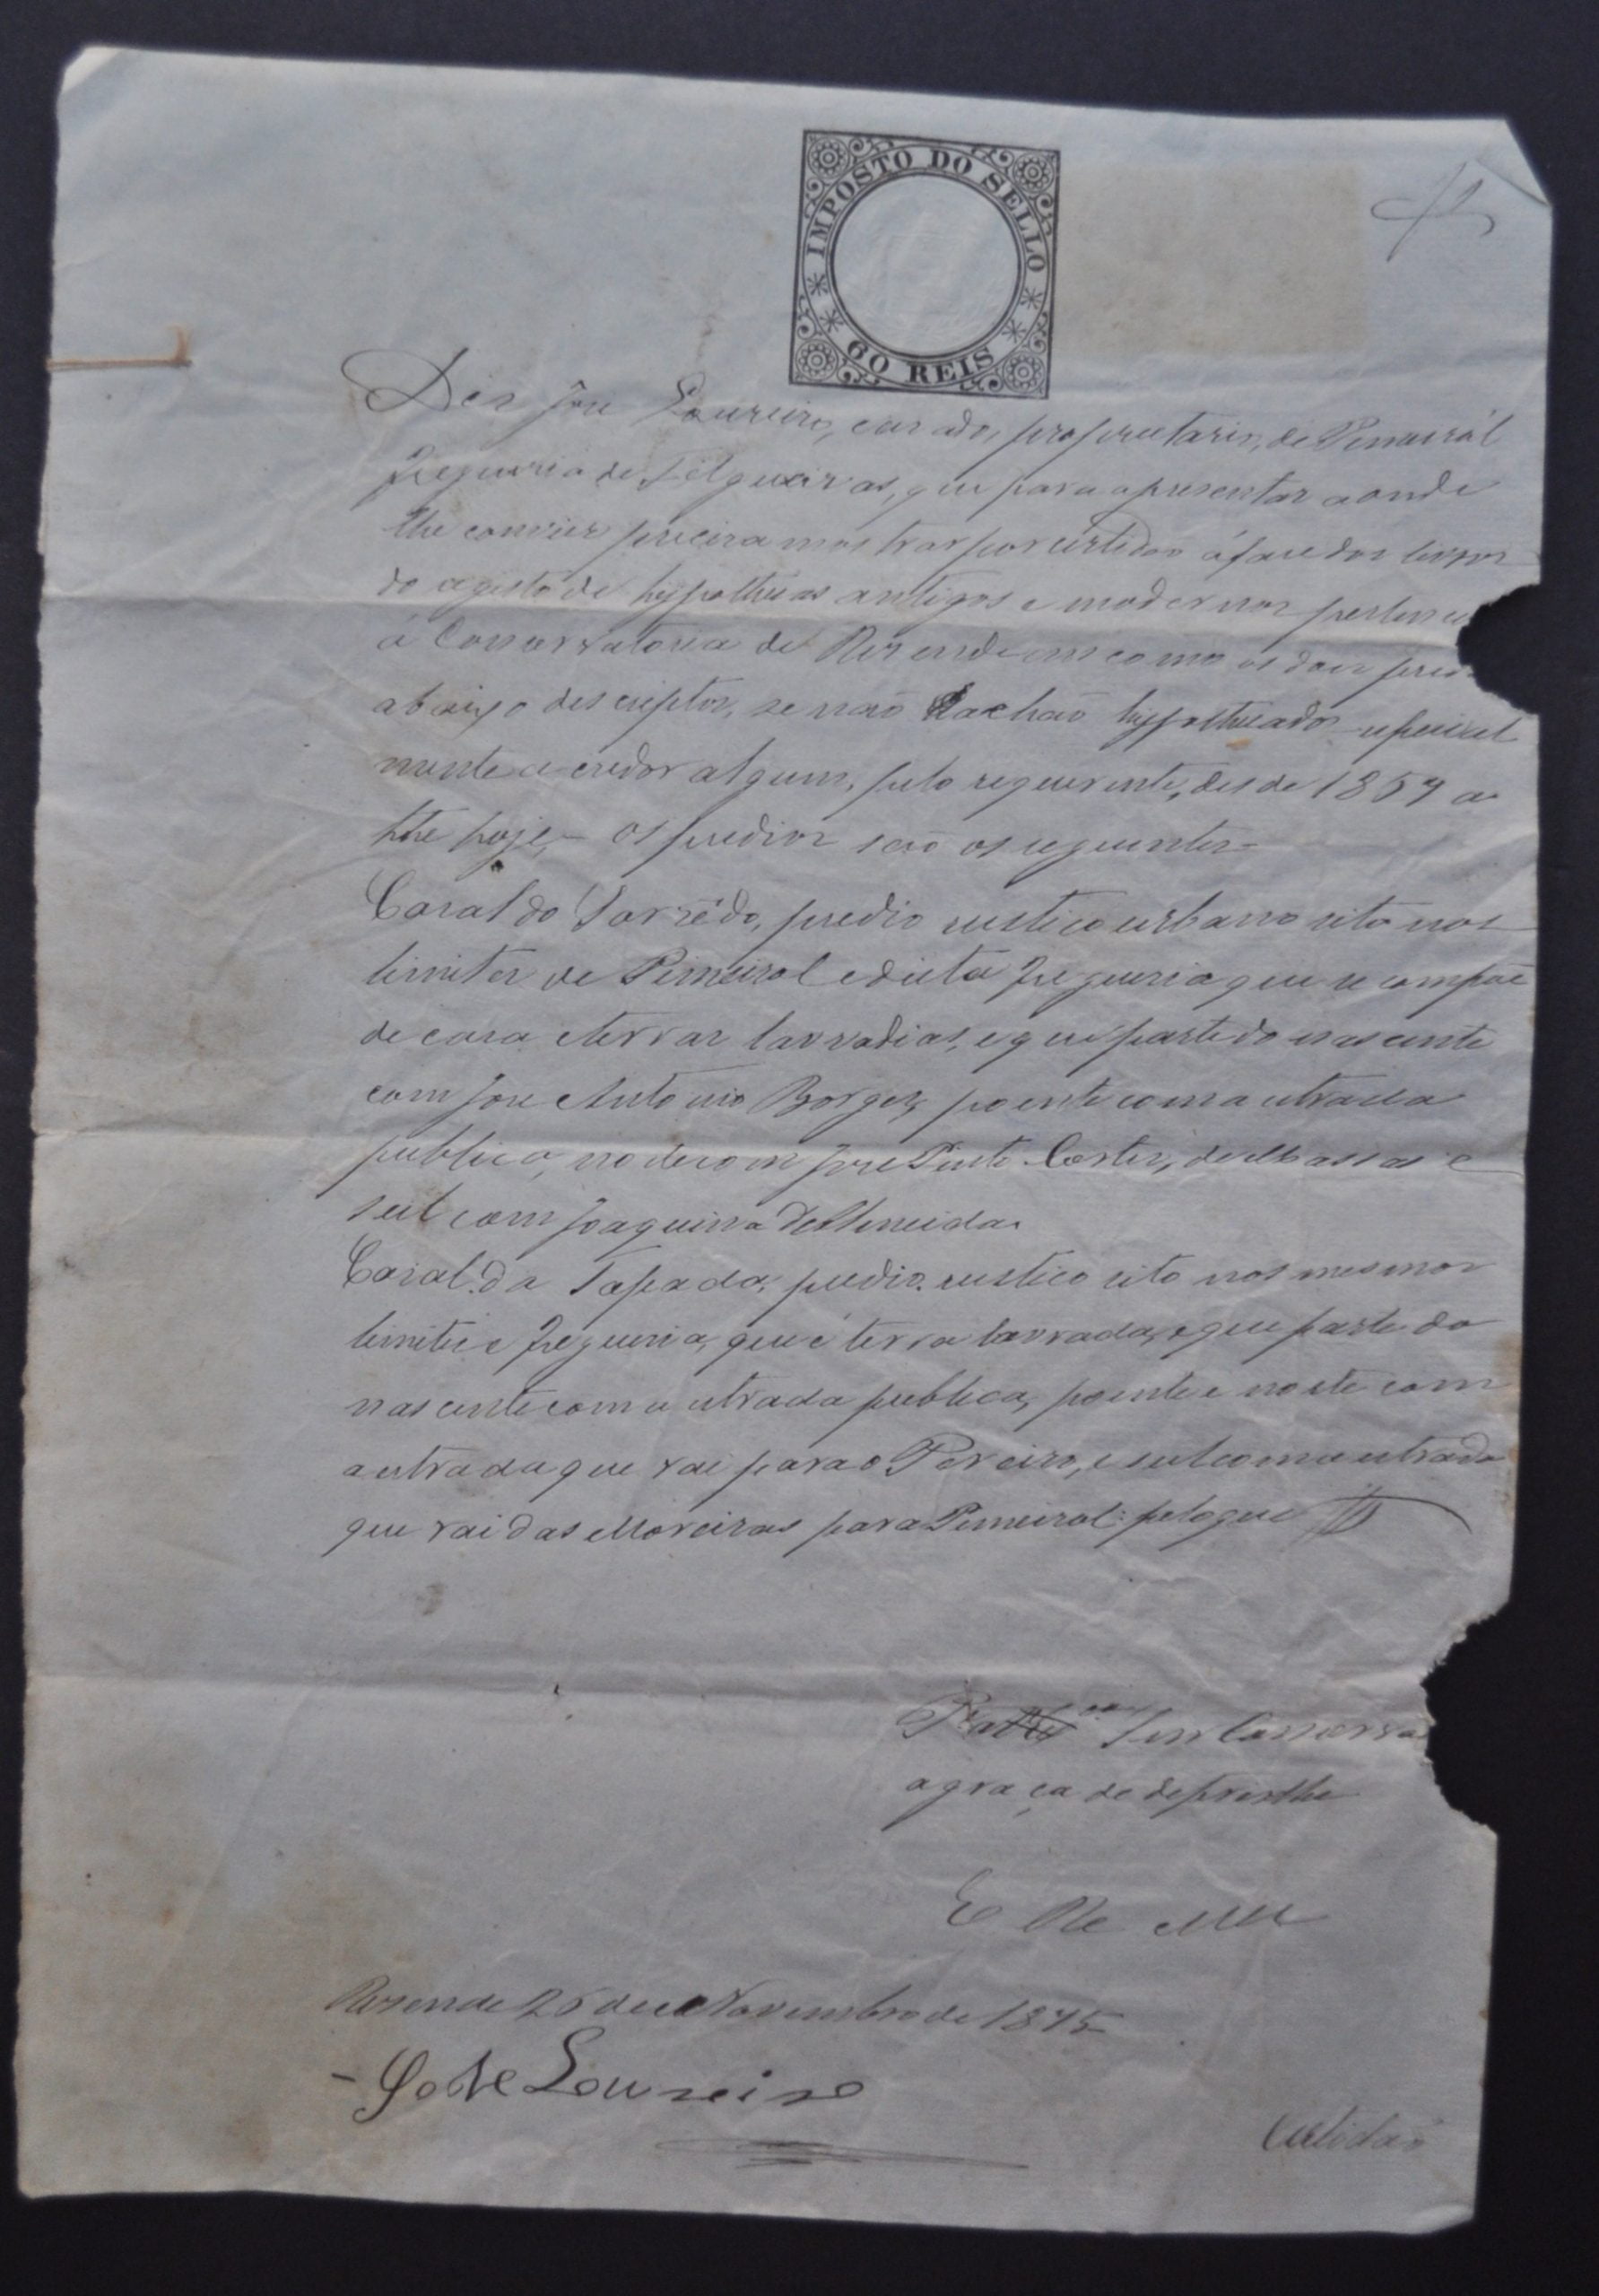 IMPOSTO DO SELLO
60 REIS
Diz José Loureiro, casado, proprietario, de Pimeirál
Freguesia de Felgueiras, que para apresentar aonde
lhe convier precisa mostrar por certidão á face dos livros
do registo de hypothecas antigos e modernos
á Conservatoria de Rezende em como os dois
abaixo descriptos, se não achão hypothecados special
mente a credor algum, pelo requerente, desde 18 a
hoje, - Os predios são os seguintes -
Casal do Torrêdo, predio rustico urbano sito nos
limites de Pimeirol e dicta Freguesia que se compõe
de casa e terras lavradias, e que parte do nascente
com José Antonio Borges, poente com a estrada
publica, norte com José Pinto Cortez, de Massas e
sul com Joaquina d'Almeida.
Casal da Tapada, predio rustico sito nos mesmos
limites e Freguesia, que é terra lavrada, e que parte do
nascente com a estrada publica, poente e norte com
a estrada que vai para o Pereiro, e sul com a estrada
que vai das Moreiras para Pimeirol: pelo que
Snr Conserva
a graça de deferirlhe
E Re Mce
Rezende 26 de Novembro de 1875
- José Loureiro
Certidão